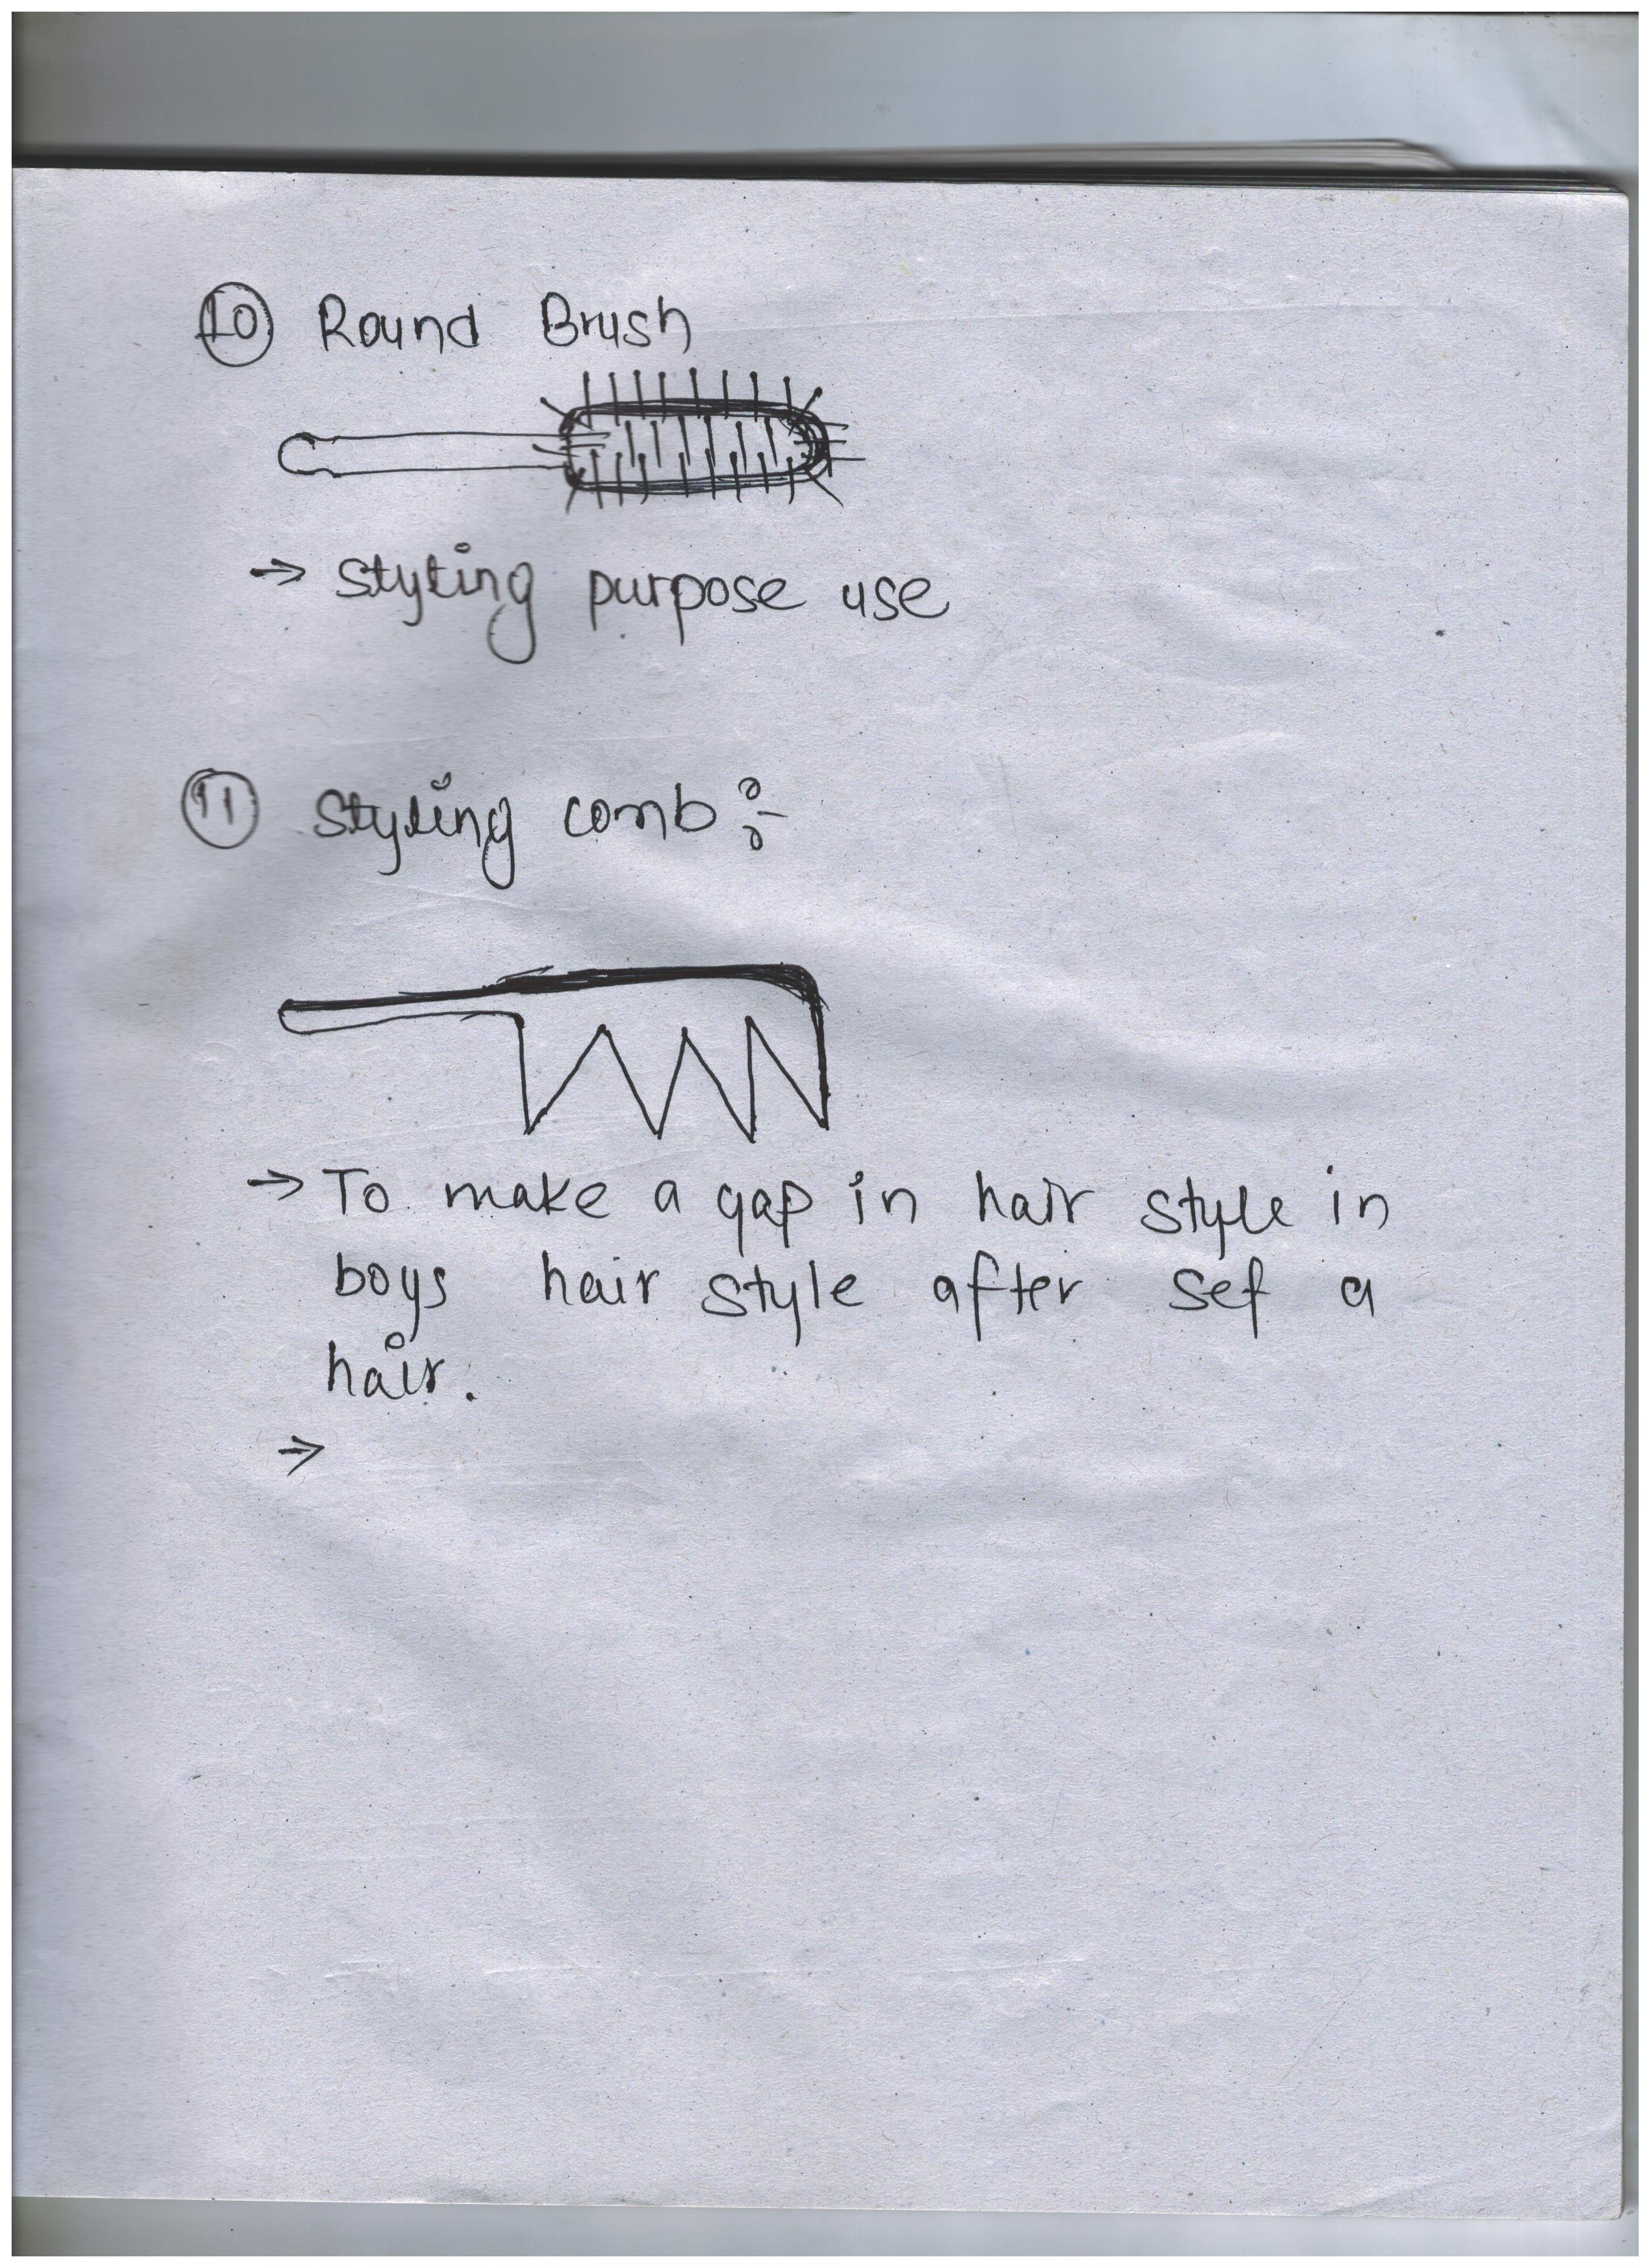 10 Round Brush
→ Styling purpose use
11 Styling comb :-
→ To make a gap in hair style in
boys hair style after sef a
hair.
→